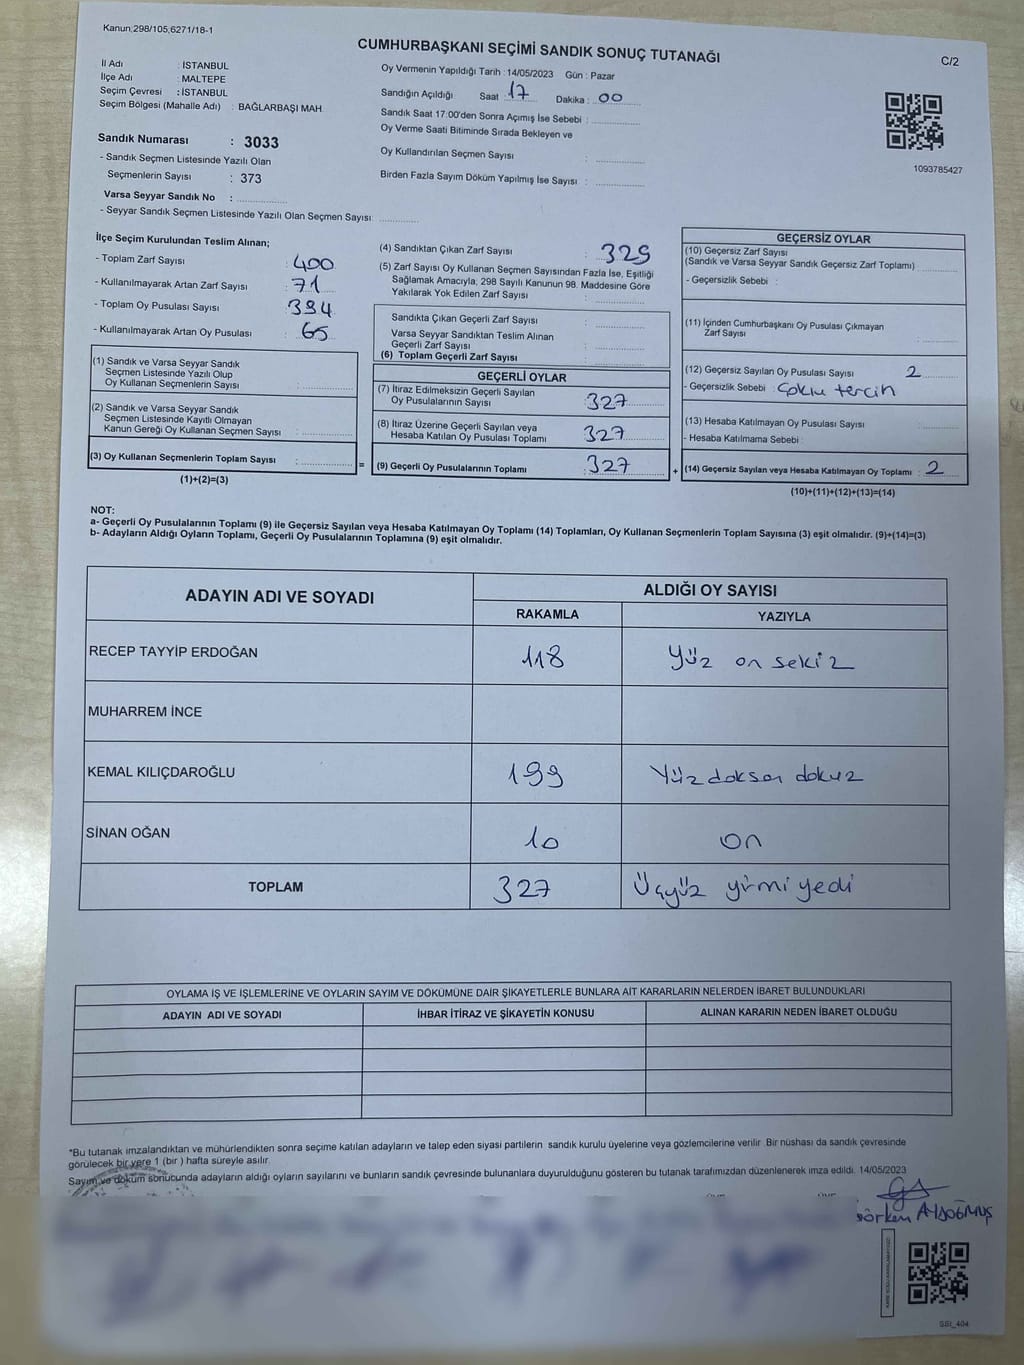 Kanun;298/105;6271/18-1
CUMHURBAŞKANI SEÇİMİ SANDIK SONUÇ TUTANAĞI
C/2
İl Adı : İSTANBUL
İlçe Adı : MALTEPE
Seçim Çevresi : İSTANBUL
Seçim Bölgesi (Mahalle Adı) : BAĞLARBAŞI MAH.
Sandık Numarası : 3033
- Sandık Seçmen Listesinde Yazılı Olan
Seçmenlerin Sayısı : 373
Varsa Seyyar Sandık No :
- Seyyar Sandık Seçmen Listesinde Yazılı Olan Seçmen Sayısı:
Oy Vermenin Yapıldığı Tarih : 14/05/2023 Gün : Pazar
Sandığın Açıldığı Saat : 17 Dakika : 00
Sandık Saat 17:00'den Sonra Açımış İse Sebebi :
Oy Verme Saati Bitiminde Sırada Bekleyen ve
Oy Kullandırılan Seçmen Sayısı :
Birden Fazla Sayım Döküm Yapılmış İse Sayısı :
1093785427
İlçe Seçim Kurulundan Teslim Alınan;
- Toplam Zarf Sayısı : 400
- Kullanılmayarak Artan Zarf Sayısı : 71
- Toplam Oy Pusulası Sayısı : 394
- Kullanılmayarak Artan Oy Pusulası : 65
(1) Sandık ve Varsa Seyyar Sandık
Seçmen Listesinde Yazılı Olup
Oy Kullanan Seçmenlerin Sayısı :
(2) Sandık ve Varsa Seyyar Sandık
Seçmen Listesinde Kayıtlı Olmayan
Kanun Gereği Oy Kullanan Seçmen Sayısı :
(3) Oy Kullanan Seçmenlerin Toplam Sayısı :
(1)+(2)=(3)
=
(4) Sandıktan Çıkan Zarf Sayısı : 329
(5) Zarf Sayısı Oy Kullanan Seçmen Sayısından Fazla İse, Eşitliği
Sağlamak Amacıyla; 298 Sayılı Kanunun 98. Maddesine Göre
Yakılarak Yok Edilen Zarf Sayısı :
Sandıkta Çıkan Geçerli Zarf Sayısı :
Varsa Seyyar Sandıktan Teslim Alınan
Geçerli Zarf Sayısı :
(6) Toplam Geçerli Zarf Sayısı :
GEÇERLİ OYLAR
(7) İtiraz Edilmeksizin Geçerli Sayılan
Oy Pusulalarının Sayısı : 327
(8) İtiraz Üzerine Geçerli Sayılan veya
Hesaba Katılan Oy Pusulası Toplamı : 327
(9) Geçerli Oy Pusulalarının Toplamı : 327
+
GEÇERSİZ OYLAR
(10) Geçersiz Zarf Sayısı
(Sandık ve Varsa Seyyar Sandık Geçersiz Zarf Toplamı) :
- Geçersizlik Sebebi :
(11) İçinden Cumhurbaşkanı Oy Pusulası Çıkmayan
Zarf Sayısı :
(12) Geçersiz Sayılan Oy Pusulası Sayısı : 2
- Geçersizlik Sebebi : Çoklu tercih
(13) Hesaba Katılmayan Oy Pusulası Sayısı :
- Hesaba Katılmama Sebebi :
(14) Geçersiz Sayılan veya Hesaba Katılmayan Oy Toplamı : 2
(10)+(11)+(12)+(13)=(14)
NOT:
a- Geçerli Oy Pusulalarının Toplamı (9) ile Geçersiz Sayılan veya Hesaba Katılmayan Oy Toplamı (14) Toplamları, Oy Kullanan Seçmenlerin Toplam Sayısına (3) eşit olmalıdır. (9)+(14)=(3)
b- Adayların Aldığı Oyların Toplamı, Geçerli Oy Pusulalarının Toplamına (9) eşit olmalıdır.
ADAYIN ADI VE SOYADI ALDIĞI OY SAYISI
RAKAMLA YAZIYLA
RECEP TAYYİP ERDOĞAN 118 Yüz on sekiz
MUHARREM İNCE
KEMAL KILIÇDAROĞLU 199 Yüz doksan dokuz
SİNAN OĞAN 10 on
TOPLAM 327 Üçyüz yirmi yedi
OYLAMA İŞ VE İŞLEMLERİNE VE OYLARIN SAYIM VE DÖKÜMÜNE DAİR ŞİKAYETLERLE BUNLARA AİT KARARLARIN NELERDEN İBARET BULUNDUKLARI
ADAYIN ADI VE SOYADI İHBAR İTİRAZ VE ŞİKAYETİN KONUSU ALINAN KARARIN NEDEN İBARET OLDUĞU
*Bu tutanak imzalandıktan ve mühürlendikten sonra seçime katılan adayların ve talep eden siyasi partilerin sandık kurulu üyelerine veya gözlemcilerine verilir. Bir nüshası da sandık çevresinde
görülecek bir yere 1 (bir ) hafta süreyle asılır.
Sayım ve döküm sonucunda adayların aldığı oyların sayılarını ve bunların sandık çevresinde bulunanlara duyurulduğunu gösteren bu tutanak tarafımızdan düzenlenerek imza edildi. 14/05/2023
Görkem AYDOĞMUŞ
SBI_404